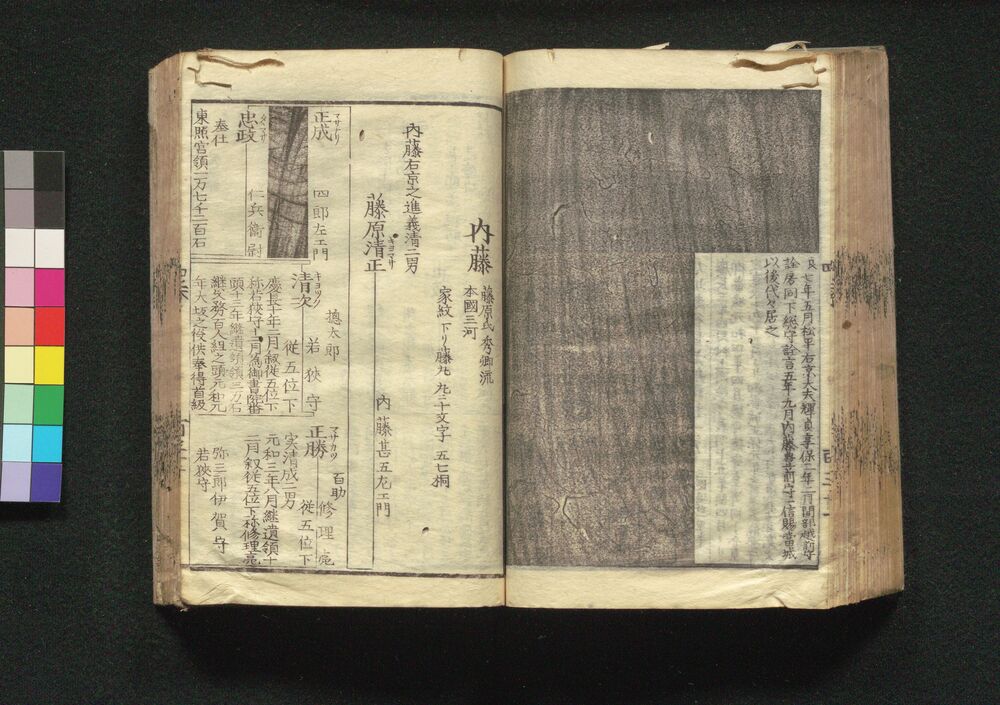 貞七年五月松平右京大夫輝貞享保二年二月間部越前守
詮房同下総守詮言五年九月内藤豊前守弌信賜當城
以後代々居之
内藤
藤原氏 秀郷流
本國三河
家紋 下リ藤丸 丸ニ十文字 五七桐
内藤右京之進義清二男
藤原清正
キヨマサ
内藤甚五左エ門
正成
マサナリ
四郎左エ門
忠政
タヽマサ
仁兵衛尉
奉仕
東照宮領一万七千二百石
清次
キヨツグ
摠太郎
若狭守
従五位下
慶長十年二月叙従五位下
称若狭守十二月為御書院番
頭十三年継遺領領三万石
継父務百人組之頭元和元
年大坂之役供奉得首級
正勝
マサカツ
百助
修理亮
従五位下
実清成二男
元和三年八月継遺領十
二月叙従五位下称修理亮
弥三郎伊賀守
若狭守